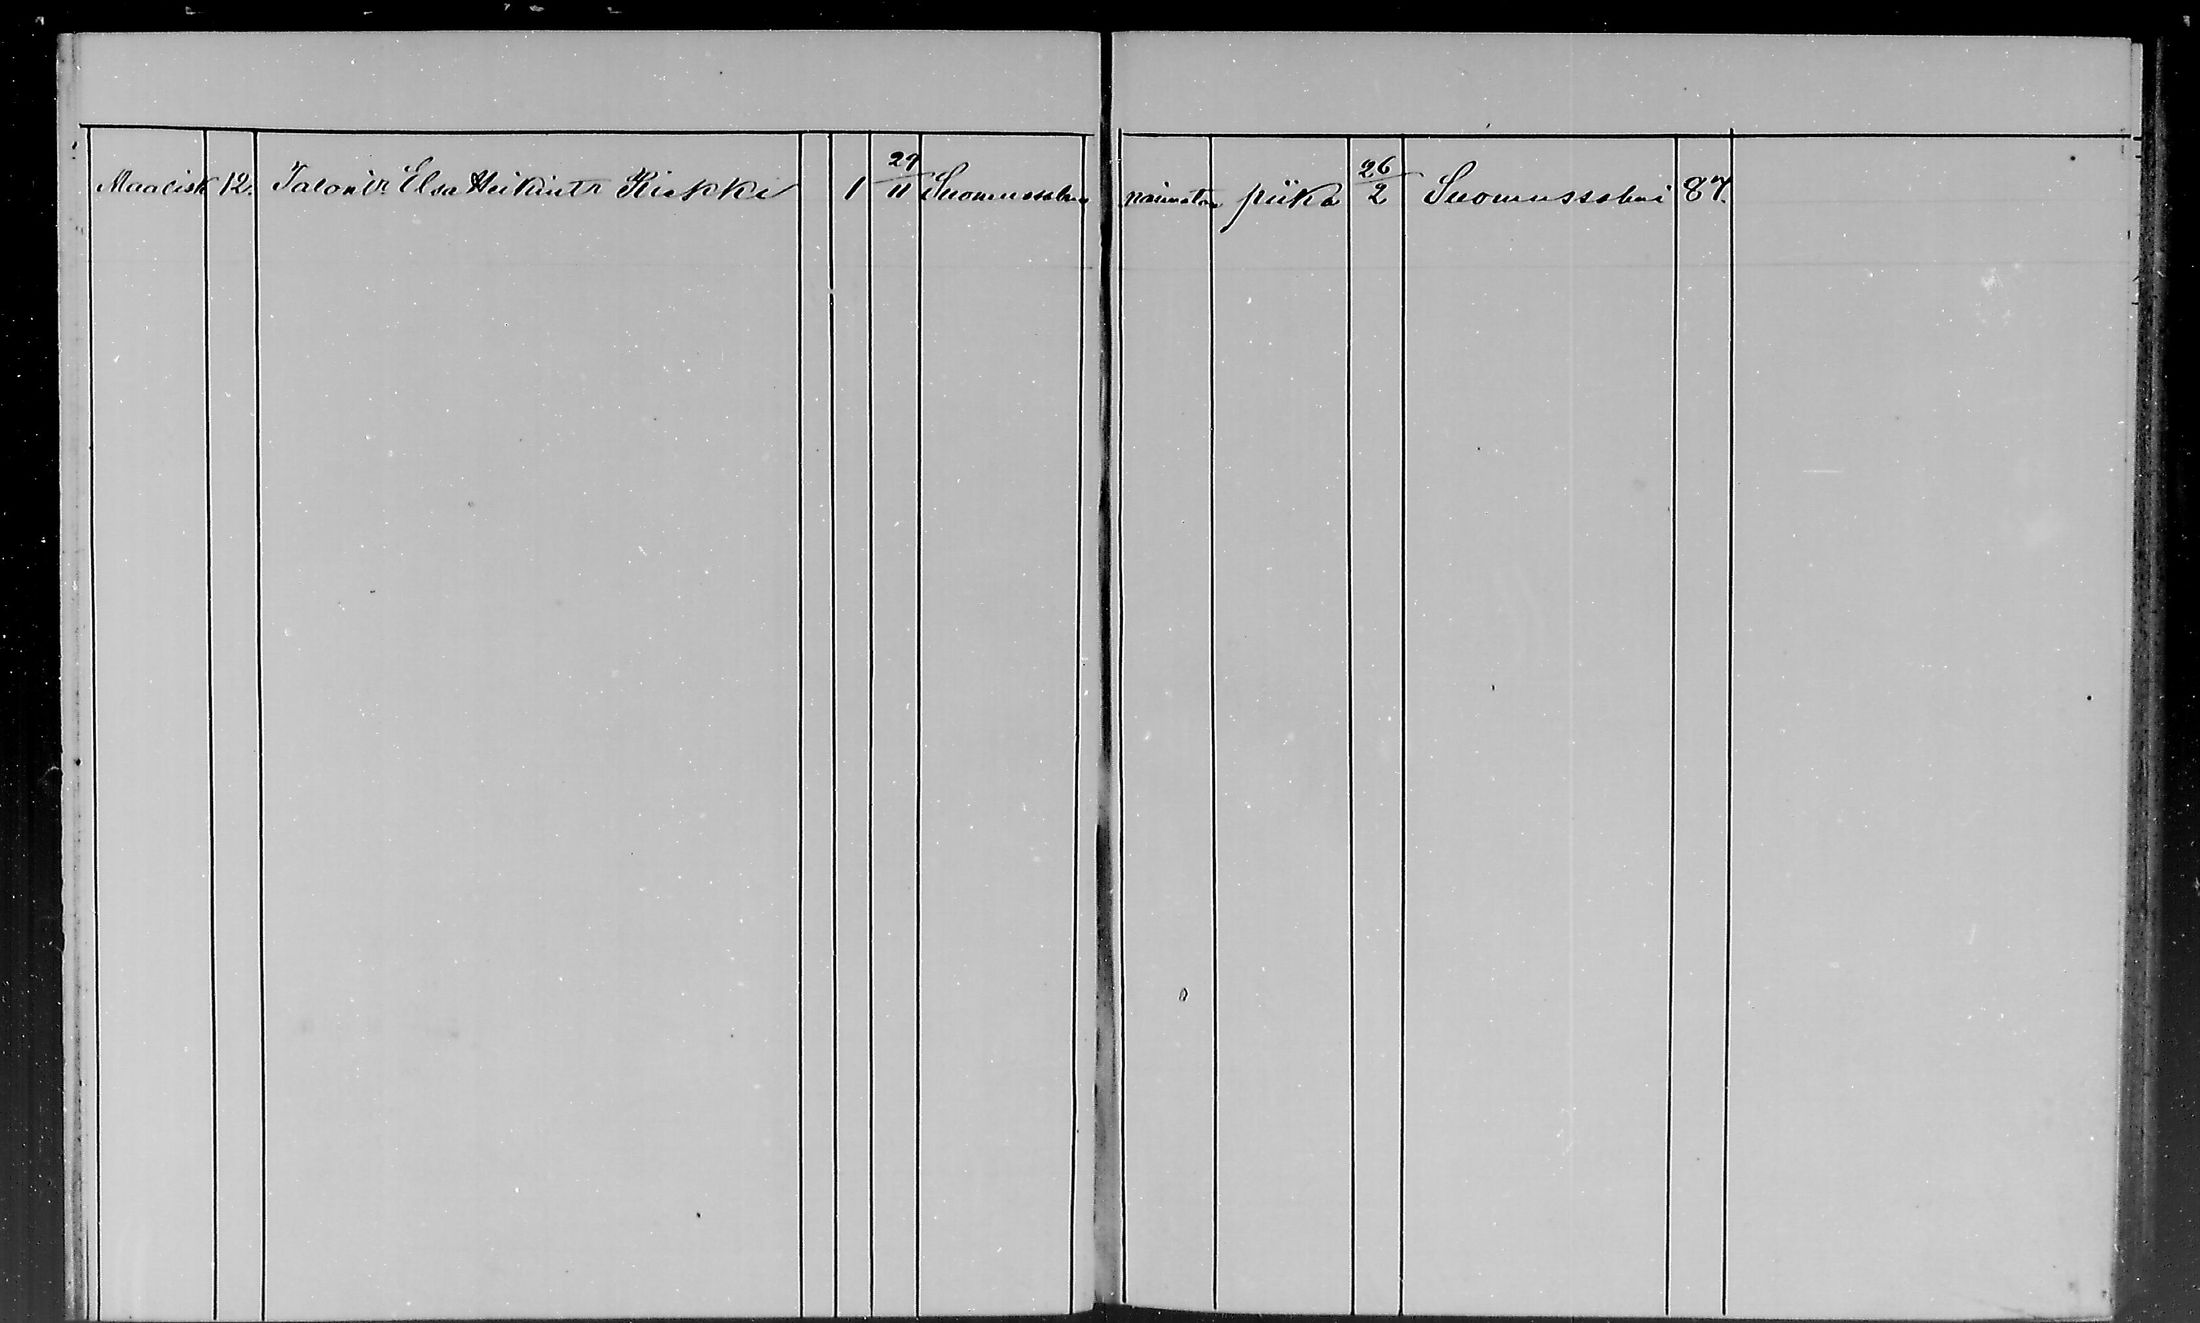 Maalisk 12. Talontr Elsa Heikintr Kiekki 1 29/11 Suomussalmi naimaton piika 26/2 Suomussalmi 87.